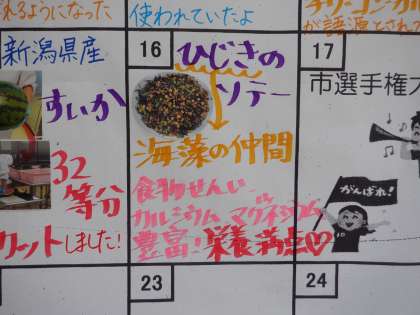 れるようになった
使われていたよ
が語源とされて
新潟県産
すいか
32
等分
カットしました!
16
ひじきの
ソテー
海藻の仲間
食物せんい
カルシウム マグネシウム
豊富! 栄養満点♡
17
市選手権大
がんばれ!
23
24